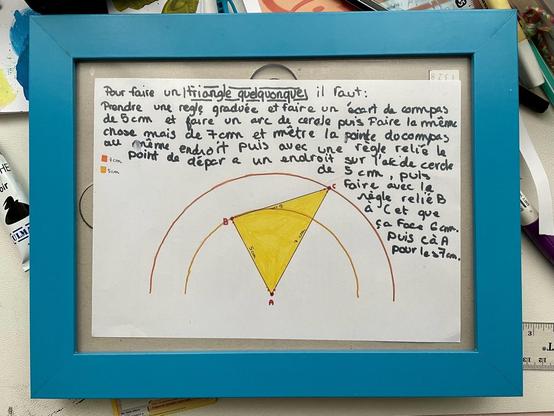 Pour faire un triangle quelquonque il faut:
Prendre une regle graduée et faire un écart de compas
de 5cm et faire un arc de cercle puis Faire la même
chose mais de 7cm et mêtre la pointe du compas
au même endroit puis avec une règle relié le
point de dépar a un endroit sur l'arc de cercle
de 5cm, puis
faire avec la
règle relié B
à C et que
ça Face 6cm.
Puis C à A
pour les 7cm.
7cm
5cm
C
B
A